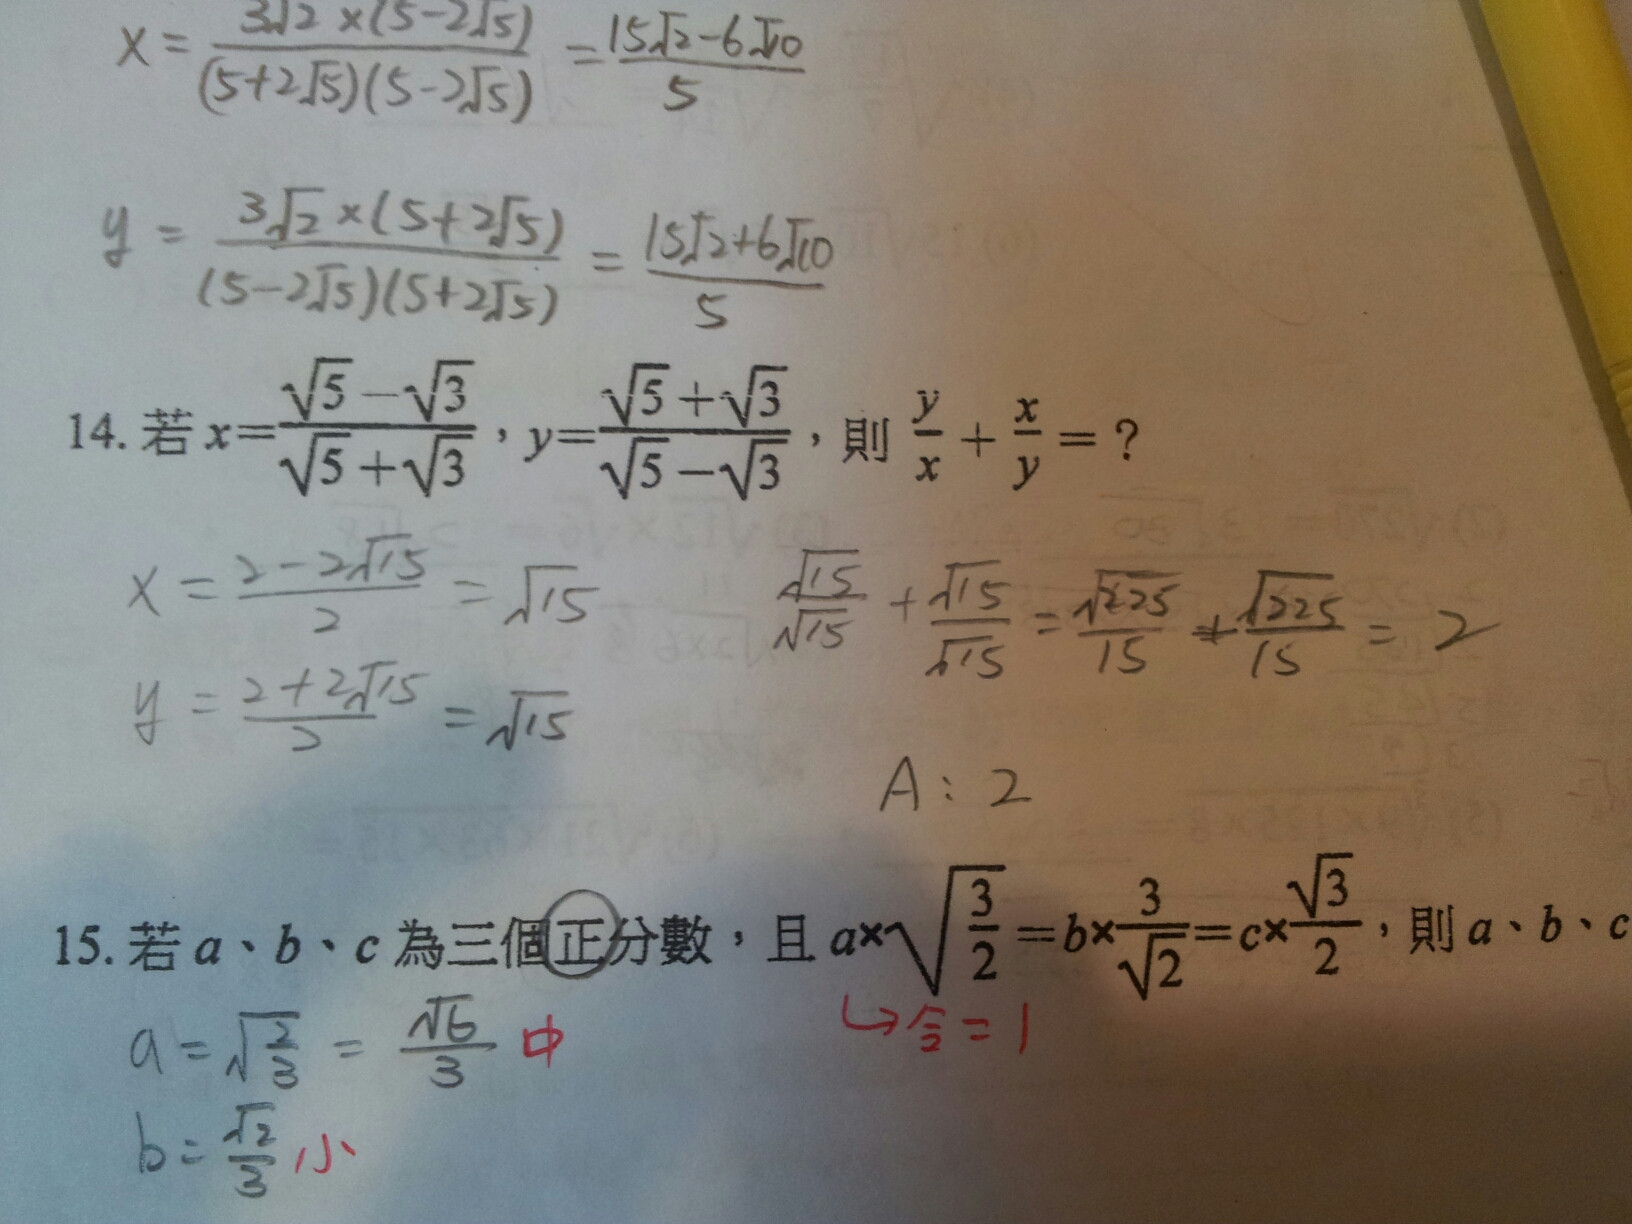 x = 3√2×(5-2√5) / (5+2√5)(5-2√5) = 15√2-6√10 / 5
y = 3√2×(5+2√5) / (5-2√5)(5+2√5) = 15√2+6√10 / 5
14. 若 x=(√5-√3)/(√5+√3)，y=(√5+√3)/(√5-√3)，則 y/x + x/y = ?
x = (2-2√15)/2 = √15
√15/√15 + √15/√15 = √225/15 + √225/15 = 2
y = (2+2√15)/2 = √15
A：2
15. 若 a、b、c 為三個正分數，且 a×√(3/2)=b×3/√2=c×√3/2，則 a、b、c
↳令=1
a = √(2/3) = √6/3 中
b = √2/3 小